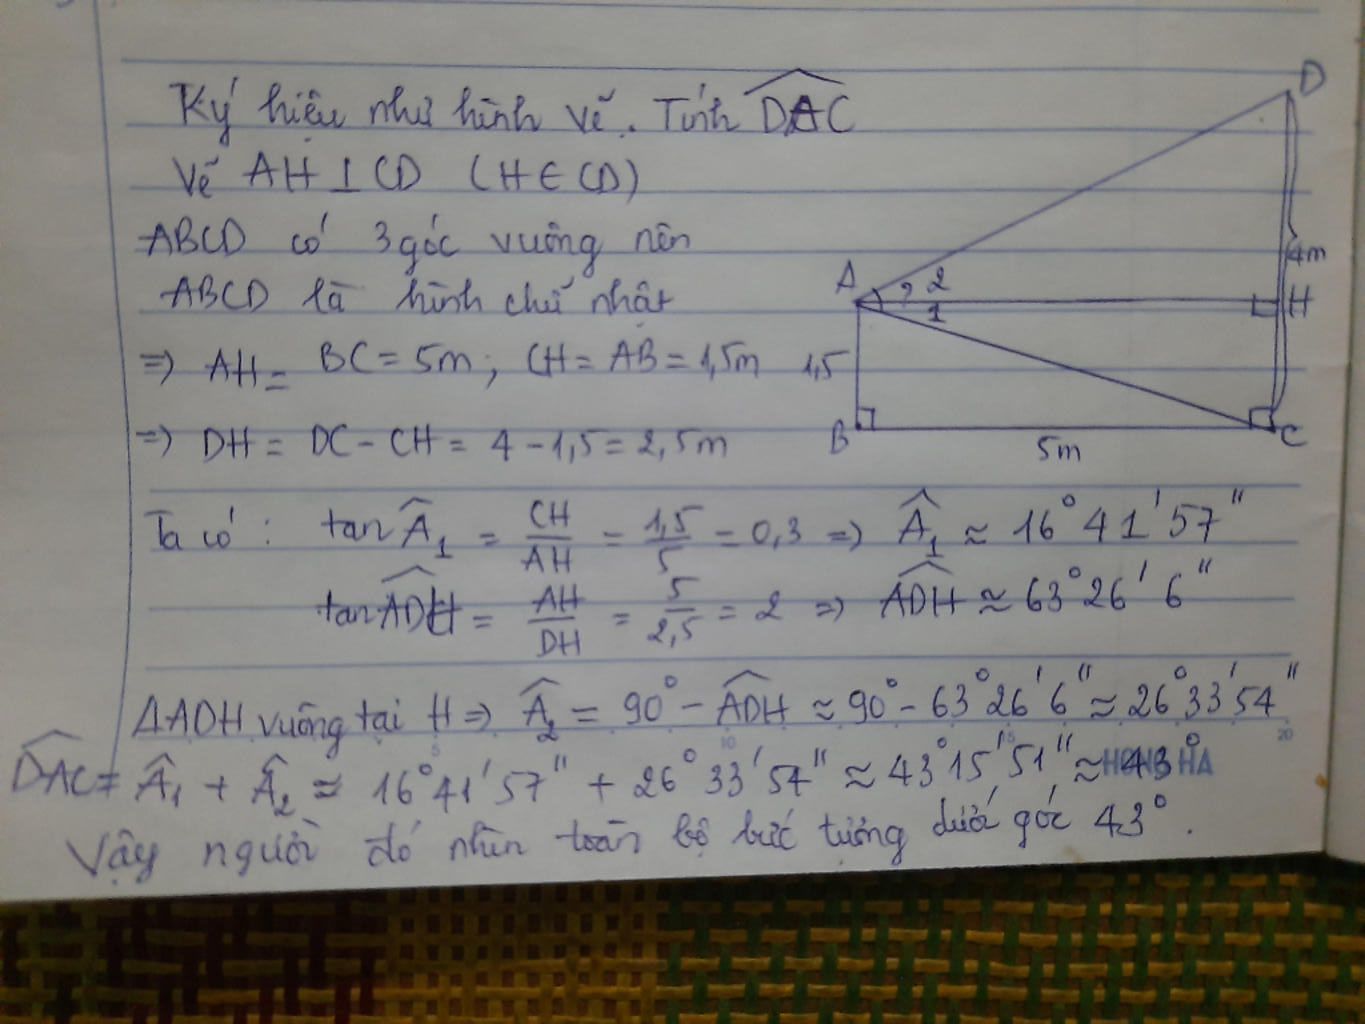 Ký hiệu như hình vẽ. Tính DAC
Vẽ AH ⊥ CD (H ∈ CD)
ABCD có 3 góc vuông nên
ABCD là hình chữ nhật
=> AH = BC = 5m ; CH = AB = 1,5m
=> DH = DC - CH = 4 - 1,5 = 2,5m
Ta có : tan Â₁ = CH/AH = 1,5/5 = 0,3 => Â₁ ≈ 16°41'57"
tan ADH = AH/DH = 5/2,5 = 2 => ADH ≈ 63°26'6"
ΔADH vuông tại H => Â₂ = 90° - ADH ≈ 90° - 63°26'6" ≈ 26°33'54"
DAC = Â₁ + Â₂ ≈ 16°41'57" + 26°33'54" ≈ 43°15'51" ≈ 43°
Vậy người đó nhìn toàn bộ bức tường dưới góc 43°.
D
4m
A ? 2
1
H
1,5
B
5m
C
5
10
15
20
HỒNG HÀ